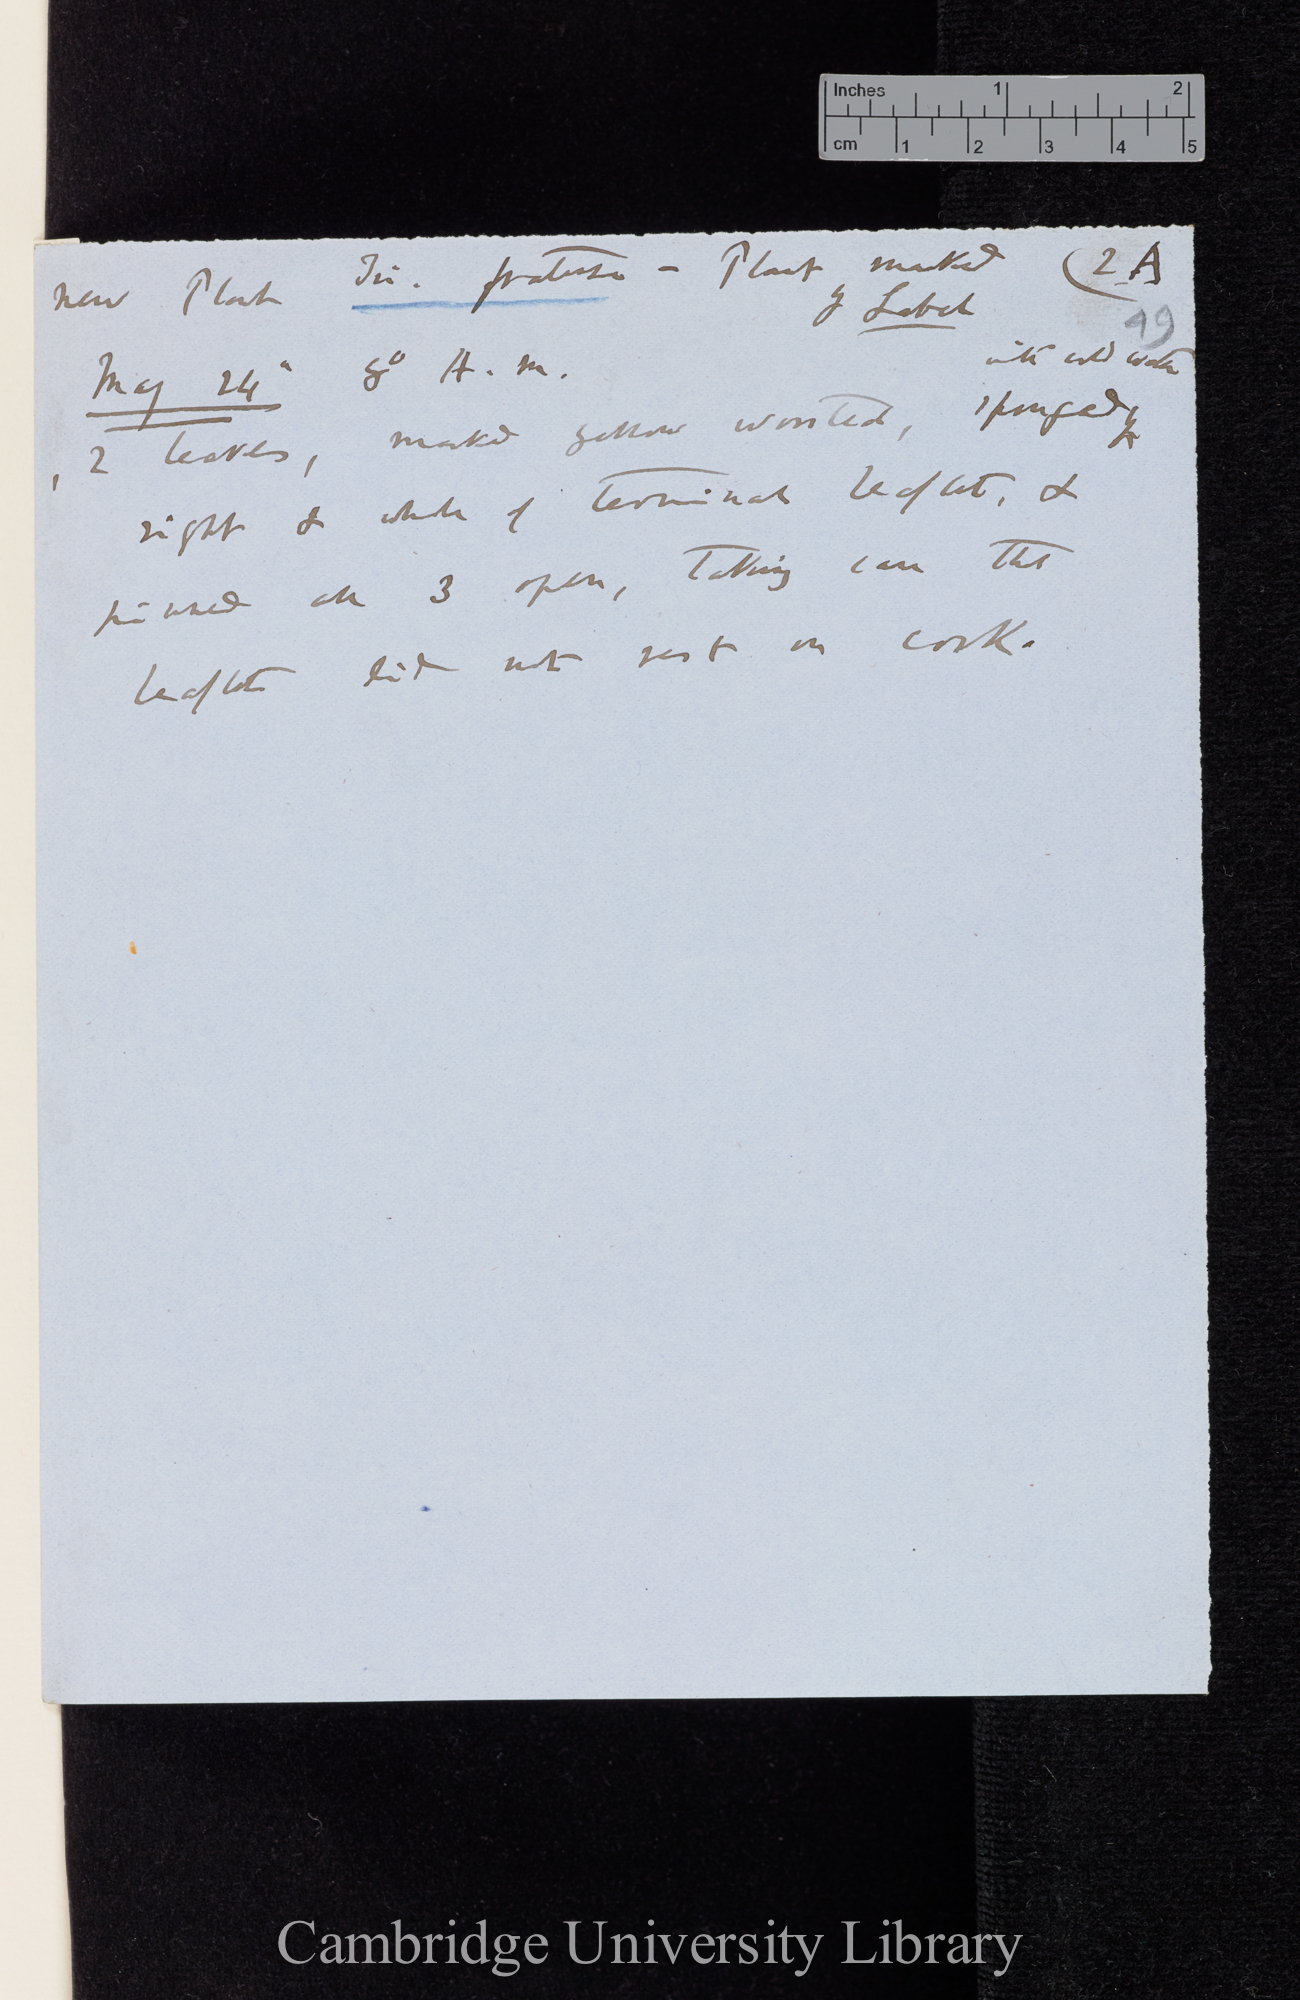 Inches 1 2
cm 1 2 3 4 5
new Plant Tri. pratense – Plant marked (2 A
y Label
49
May 24" 8° A.m.
with cold water
, 2 leaves, marked yellow worsted, sponged
right & whole of terminal leaflet, &
pinned all 3 open, taking care that
leaflets did not rest on cork.
Cambridge University Library